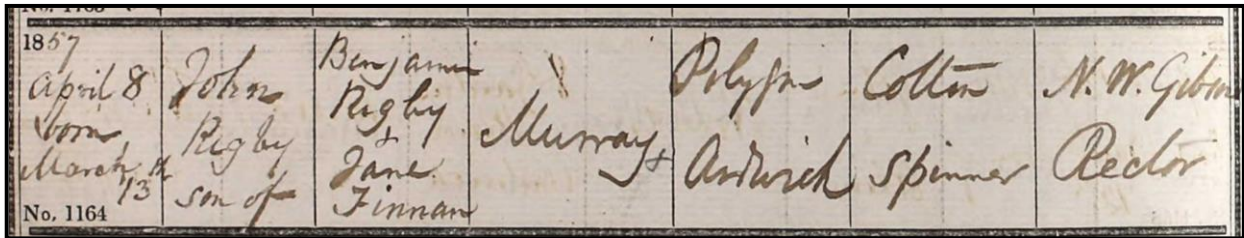 1857
April 8
born
March 13th
No. 1164
John
Rigby
son of
Benjamin
Rigby
+
Jane
Finnan
Murray
Polygon
Ardwick
Cotton
Spinner
N. W. Gibson
Rector